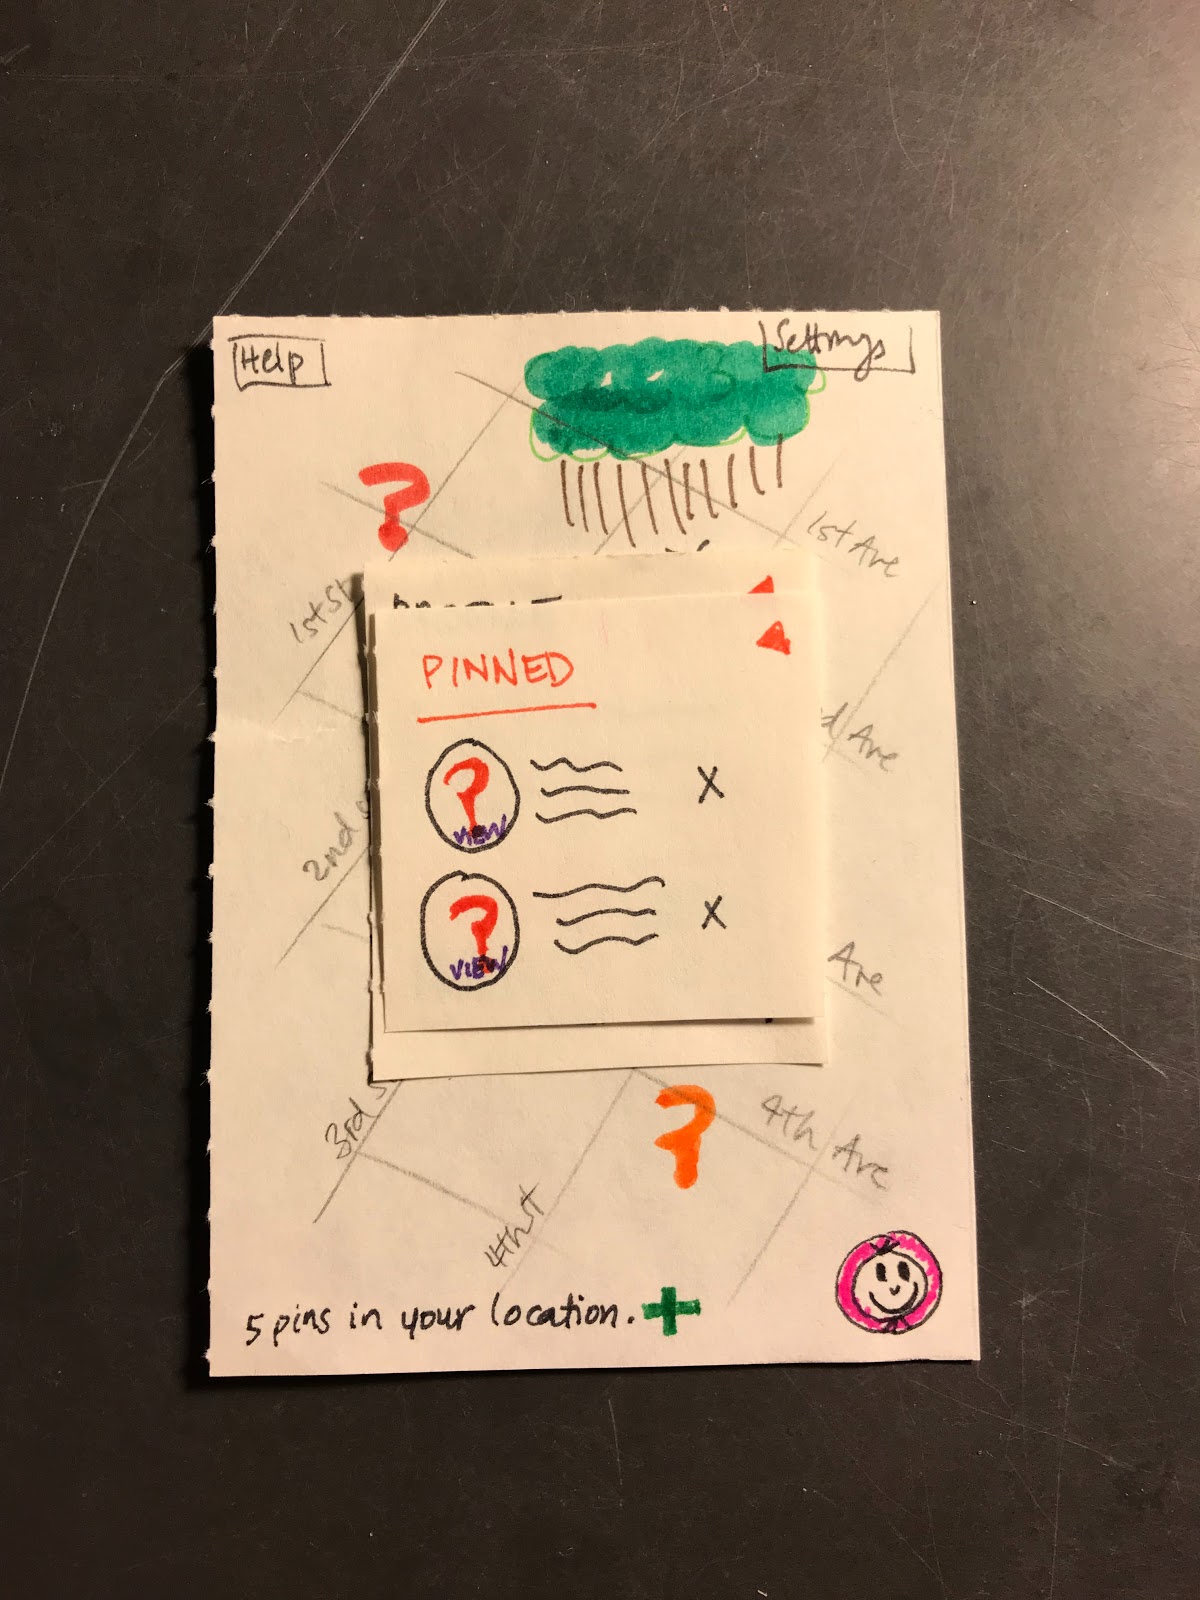 Help
Settings
1st Ave
1st St
PINNED
d Ave
?
VIEW
X
2nd
?
VIEW
X
Ave
?
3rd S
4th Ave
4th st
5 pins in your location. +